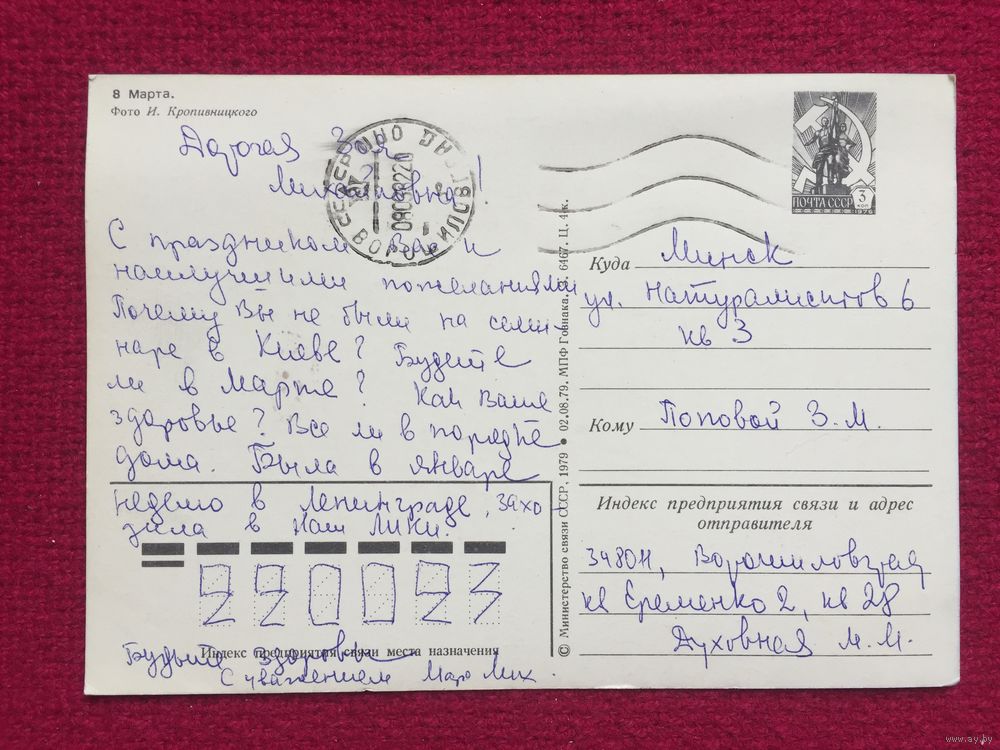 8 Марта.
Фото И. Кропивницкого
Дорогая Зоя
Михайловна!
С праздником Вас и
наилучшими пожеланиями
Почему Вы не были на семи-
наре в Киеве? Будете
ли в Марте? Как Ваше
здоровье? Все ли в порядке
дома. Была в январе
неделю в Ленинграде, захо-
дила в наш ЛИКИ.
220023
Индекс предприятия связи места назначения
Будьте здоровы
С уважением Мих.
© Министерство связи СССР, 1979 ● 02.08.79. МПФ Гознака. 6467. Ц. 4 к.
ПОЧТА СССР
3
КОП
1976
Куда Минск
ул. Натуралистов 6
кв 3
Кому Поповой З. М.
Индекс предприятия связи и адрес
отправителя
348011, Ворошиловград
кв Еременко 2, кв 28
Духовная М. М.
www.ay.by